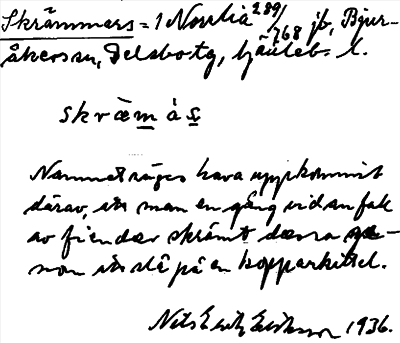 Skrämmars = 1 Norrlia 289/768 jb, Bjur-
åkers sn, Delsbo tg, Gävleb. l.
skràm às
Namnet säges hava uppkommit
därav, att man en gång vid anfall
av fiender skrämt dessa ge-
nom att slå på en kopparkittel.
Nils Erik Eriksson 1936.